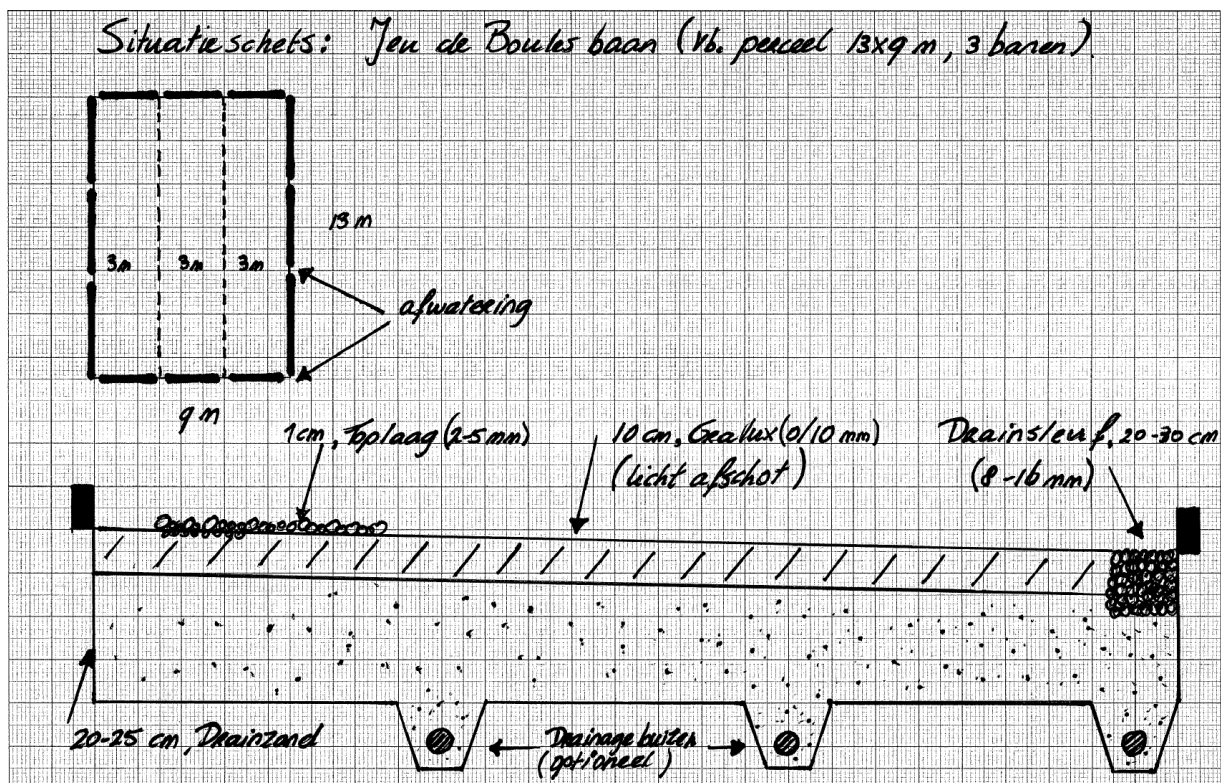 Situatieschets: Jeu de Boules baan (vb. perceel 13x9 m, 3 banen).
13 m
3m 3m 3m
afwatering
9 m
1 cm, Toplaag (2-5 mm)
10 cm, Gralux (0/10 mm)
(licht afschot)
Drainsleuf, 20-30 cm
(8-16 mm)
20-25 cm, Drainzand
Drainage buizen
(optioneel)